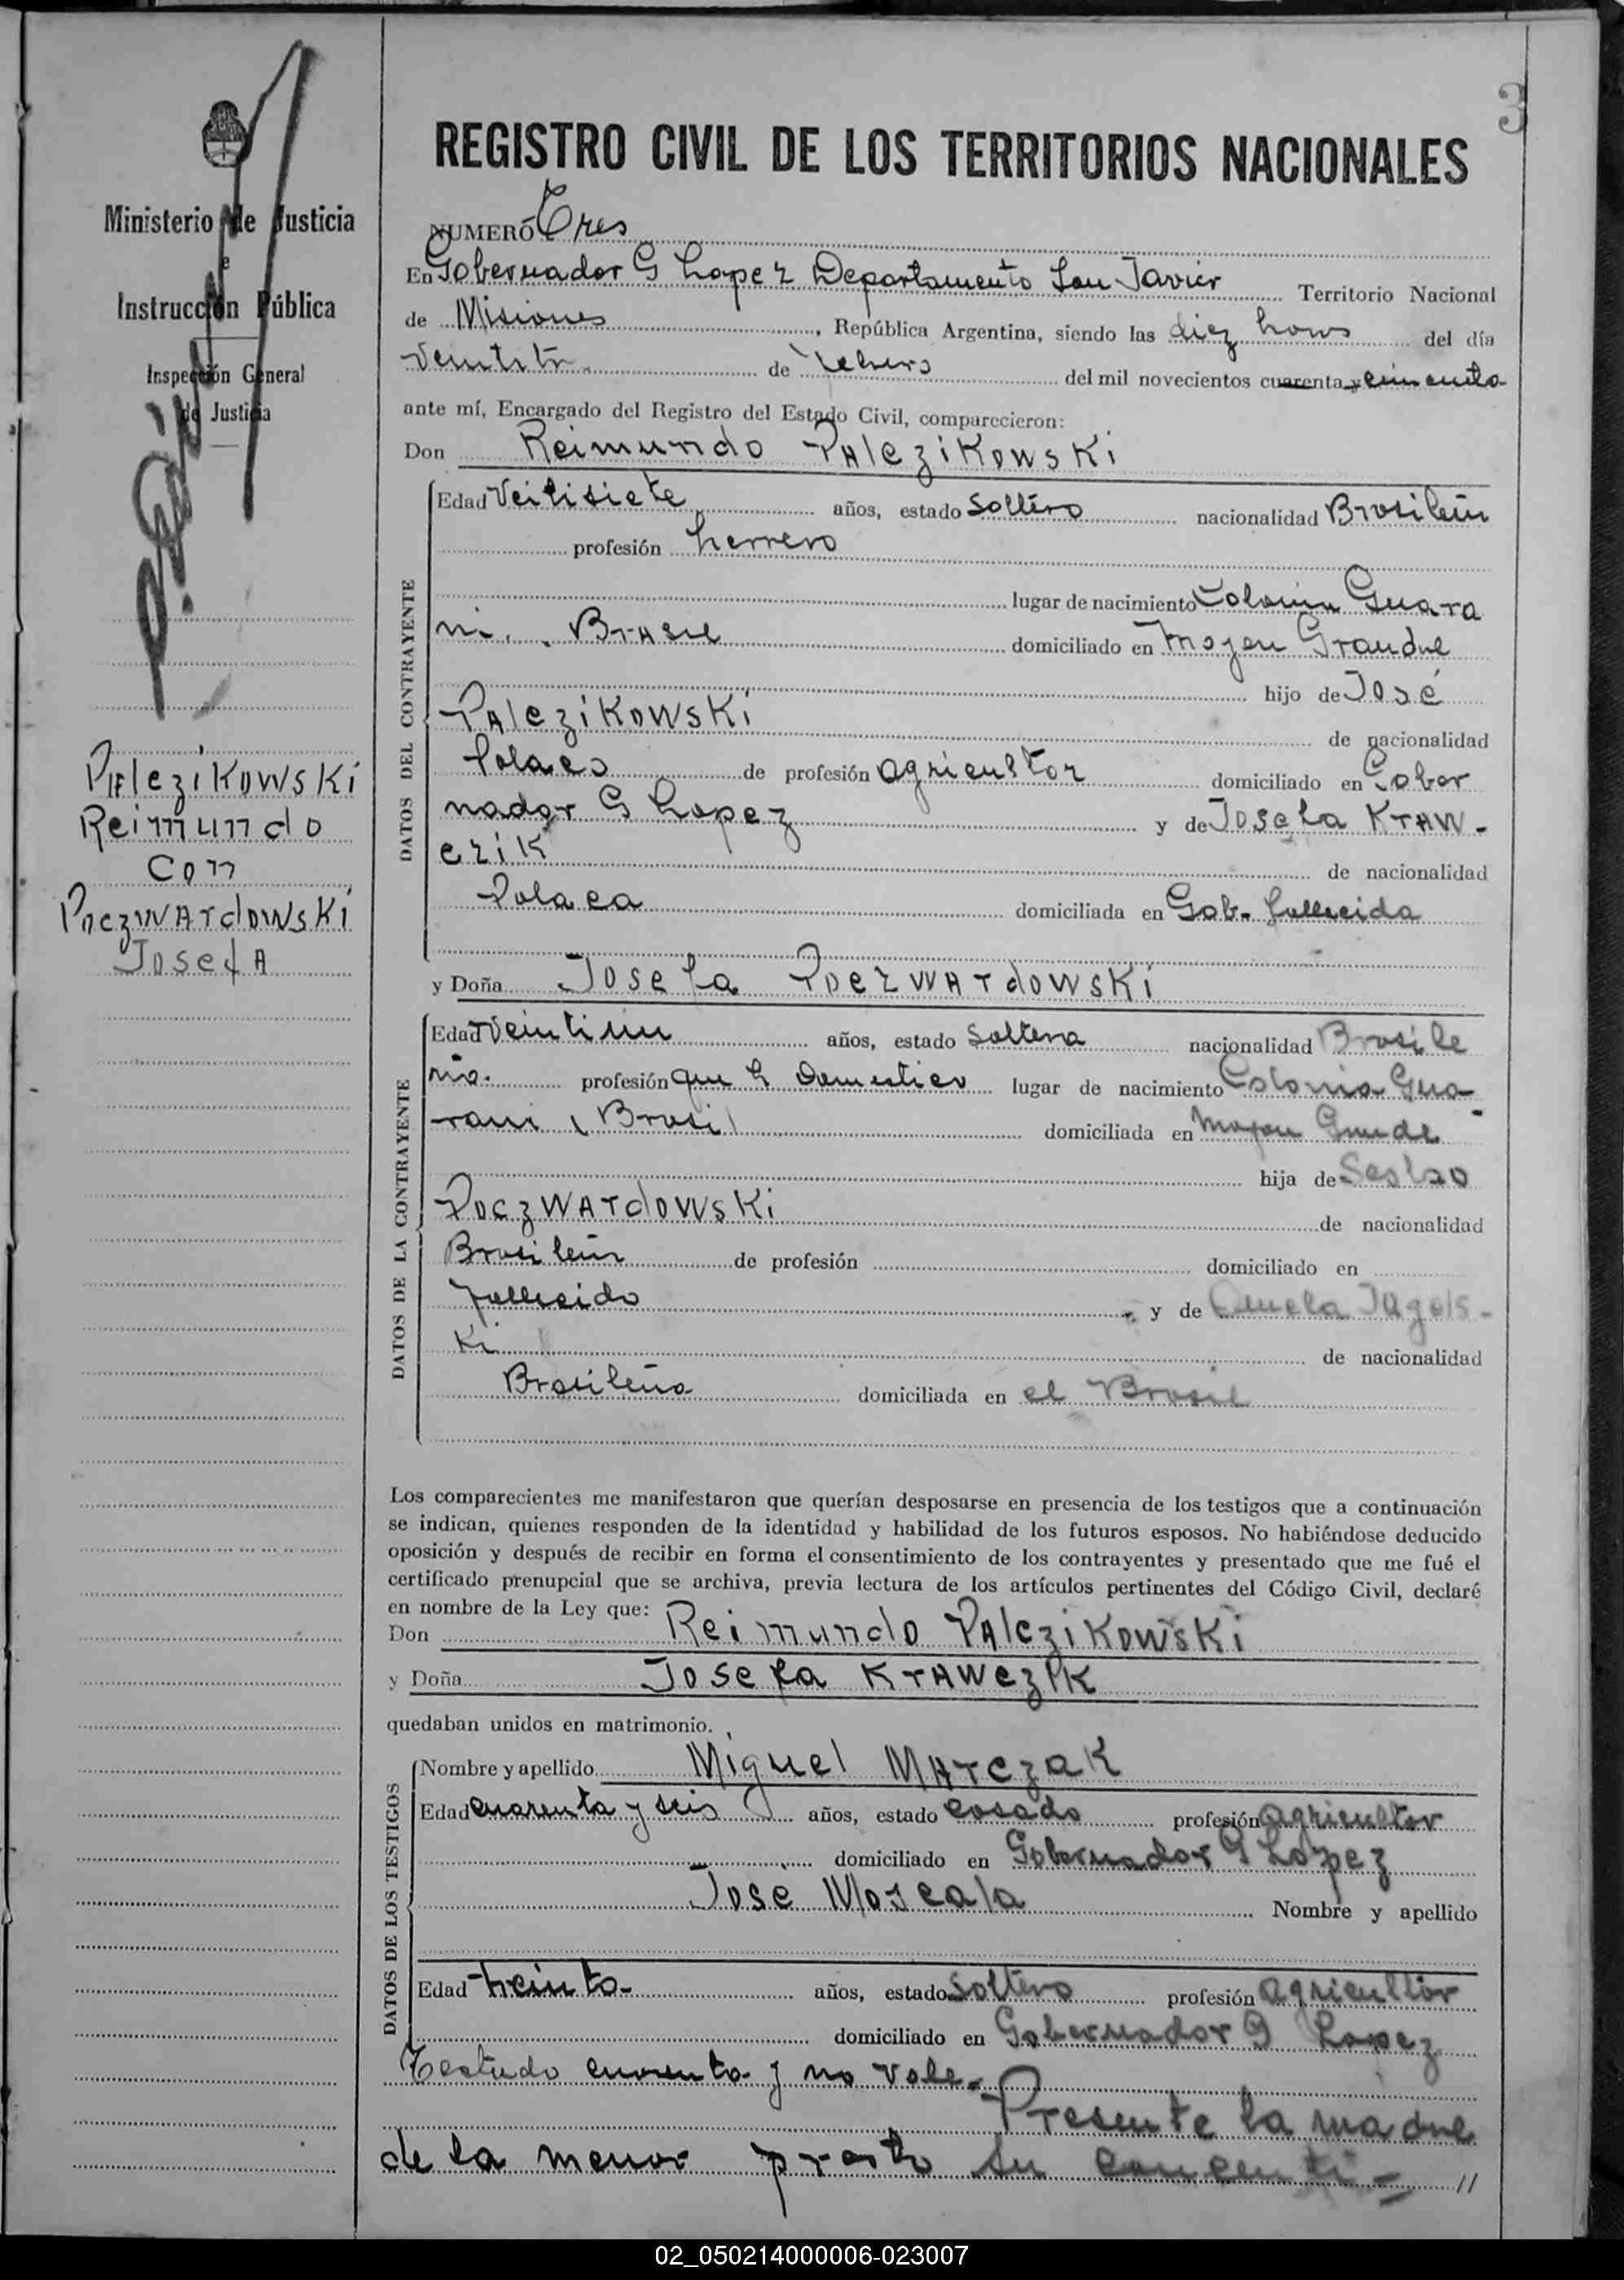 3
REGISTRO CIVIL DE LOS TERRITORIOS NACIONALES
Ministerio de Justicia
e
Instrucción Pública
Inspección General
de Justicia
PAlczikowski
Reimundo
con
Poczwardowski
Josefa
NUMERO Tres
En Gobernador G Lopez Departamento San Javier Territorio Nacional
de Misiones, República Argentina, siendo las diez horas del día
de del mil novecientos cuarenta y cincuenta
ante mí, Encargado del Registro del Estado Civil, comparecieron:
Don Reimundo PAlczikowski
DATOS DEL CONTRAYENTE
Edad Veitisiete años, estado Soltero nacionalidad Brasileñ
profesión herrero
lugar de nacimiento Colonia Guara
ni. Brasil domiciliado en Grande
hijo de José
PAlczikowski de nacionalidad
Polaco de profesión agricultor domiciliado en Gober
nador G Lopez y de Josefa Kraw-
czik de nacionalidad
Polaca domiciliada en Gob. fallecida
y Doña Josefa Poczwardowski
DATOS DE LA CONTRAYENTE
Edad Veintiun años, estado Soltera nacionalidad Brasile
ña. profesión que h Domestico lugar de nacimiento Colonia Gua
rani, Brasil domiciliada en Grande
hija de
Poczwardowski de nacionalidad
Brasileñ de profesión domiciliado en
fallecido y de
ki de nacionalidad
Brasileña domiciliada en el Brasil
Los comparecientes me manifestaron que querían desposarse en presencia de los testigos que a continuación
se indican, quienes responden de la identidad y habilidad de los futuros esposos. No habiéndose deducido
oposición y después de recibir en forma el consentimiento de los contrayentes y presentado que me fué el
certificado prenupcial que se archiva, previa lectura de los artículos pertinentes del Código Civil, declaré
en nombre de la Ley que:
Don Reimundo PAlczikowski
y Doña Josefa Krawczik
quedaban unidos en matrimonio.
DATOS DE LOS TESTIGOS
Nombre y apellido Miguel Marczak
Edad cuarenta y seis años, estado casado profesión agricultor
domiciliado en Gobernador G Lopez
José Moscala Nombre y apellido
Edad treinta- años, estado soltero profesión agricultor
domiciliado en Gobernador G Lopez
Testado cuarenta y no vale.
Presente la madre
de la menor presto su concenti- //
02_050214000006-023007